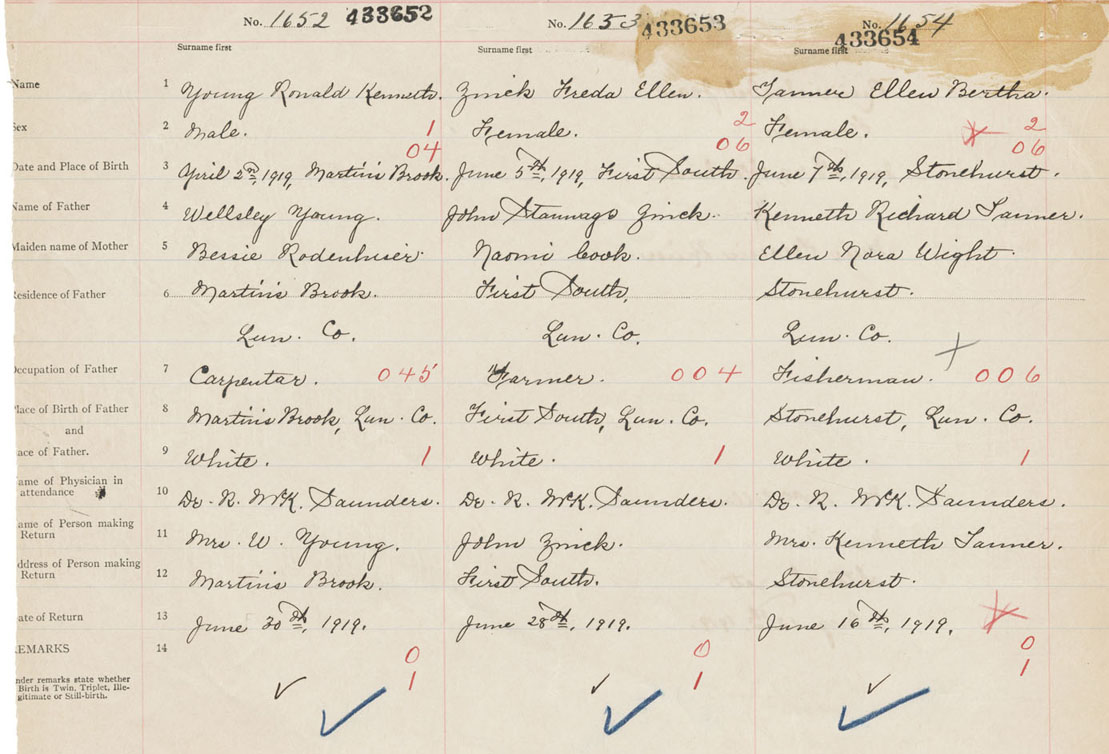 No. 1652 433652 No. 1653 433653 No. 1654 433654
Surname first Surname first Surname first
Name 1 Young Ronald Kenneth. Zinck Freda Ellen. Tanner Ellen Bertha.
Sex 2 Male. 1 Female. 2 Female. 2
04 06 06
Date and Place of Birth 3 April 2nd, 1919, Martin's Brook. June 5th, 1919, First South. June 7th, 1919, Stonehurst.
Name of Father 4 Wellsley Young. John Zinck. Kenneth Richard Tanner.
Maiden name of Mother 5 Bessie Rodenhiser. Naomi Cook. Ellen Nora Wight.
Residence of Father 6 Martin's Brook. First South, Stonehurst.
Lun. Co. Lun. Co. Lun. Co.
Occupation of Father 7 Carpentar. 045 Farmer. 004 Fisherman. 006
Place of Birth of Father 8 Martin's Brook, Lun. Co. First South, Lun. Co. Stonehurst, Lun. Co.
and
ace of Father. 9 White. 1 White. 1 White. 1
ame of Physician in
attendance 10 Dr. R. McK. Saunders. Dr. R. McK. Saunders. Dr. R. McK. Saunders.
ame of Person making
Return 11 Mrs. W. Young. John Zinck. Mrs. Kenneth Tanner.
ddress of Person making
Return 12 Martin's Brook. First South. Stonehurst.
ate of Return 13 June 30th, 1919. June 28th, 1919. June 16th, 1919.
EMARKS 14 0 0 0
nder remarks state whether 1 1 1
Birth is Twin, Triplet, Ille-
gitimate or Still-birth.